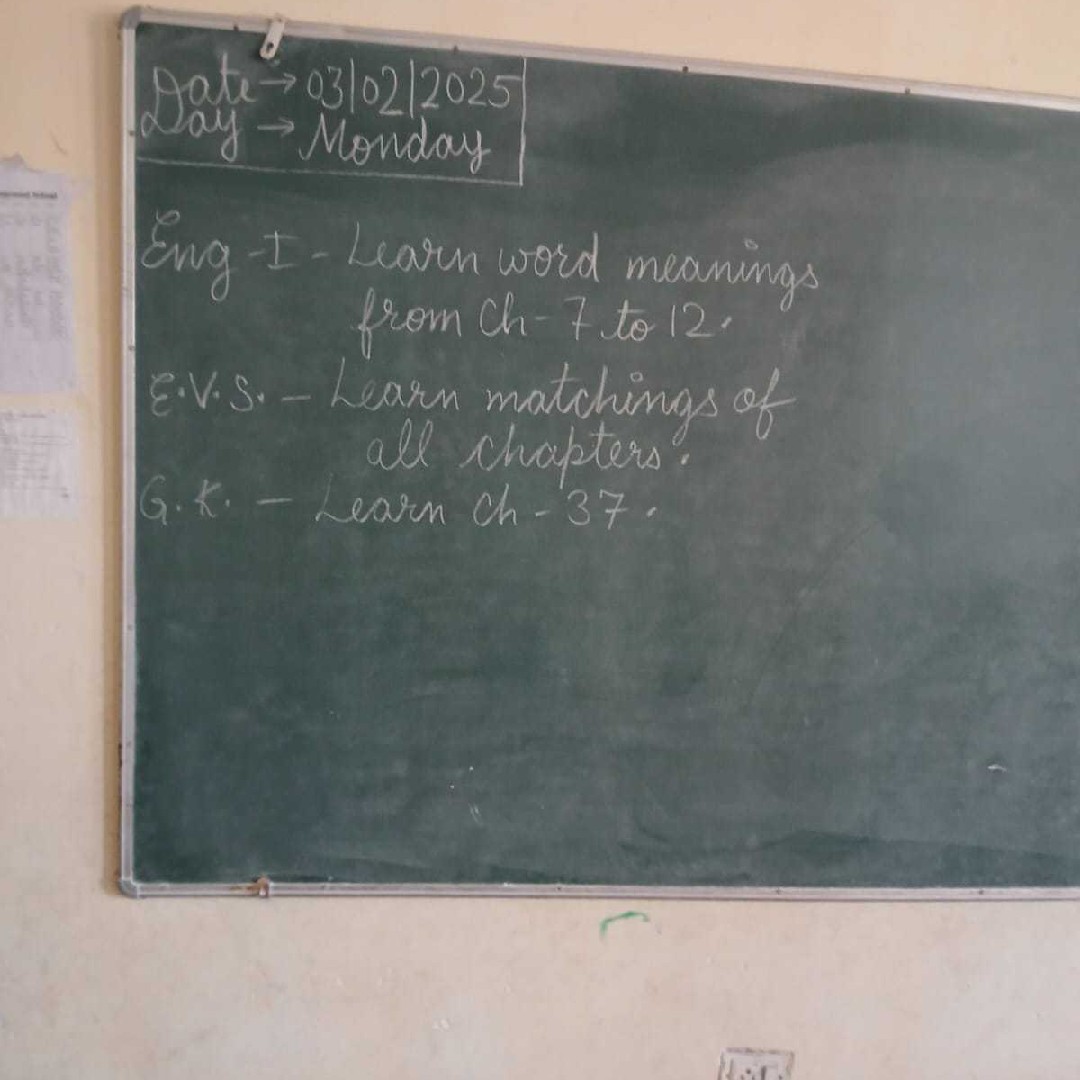 Date → 03/02/2025
Day → Monday
Eng - I - Learn word meanings
from Ch - 7 to 12.
E.V.S. - Learn matchings of
all chapters.
G.K. - Learn Ch - 37.